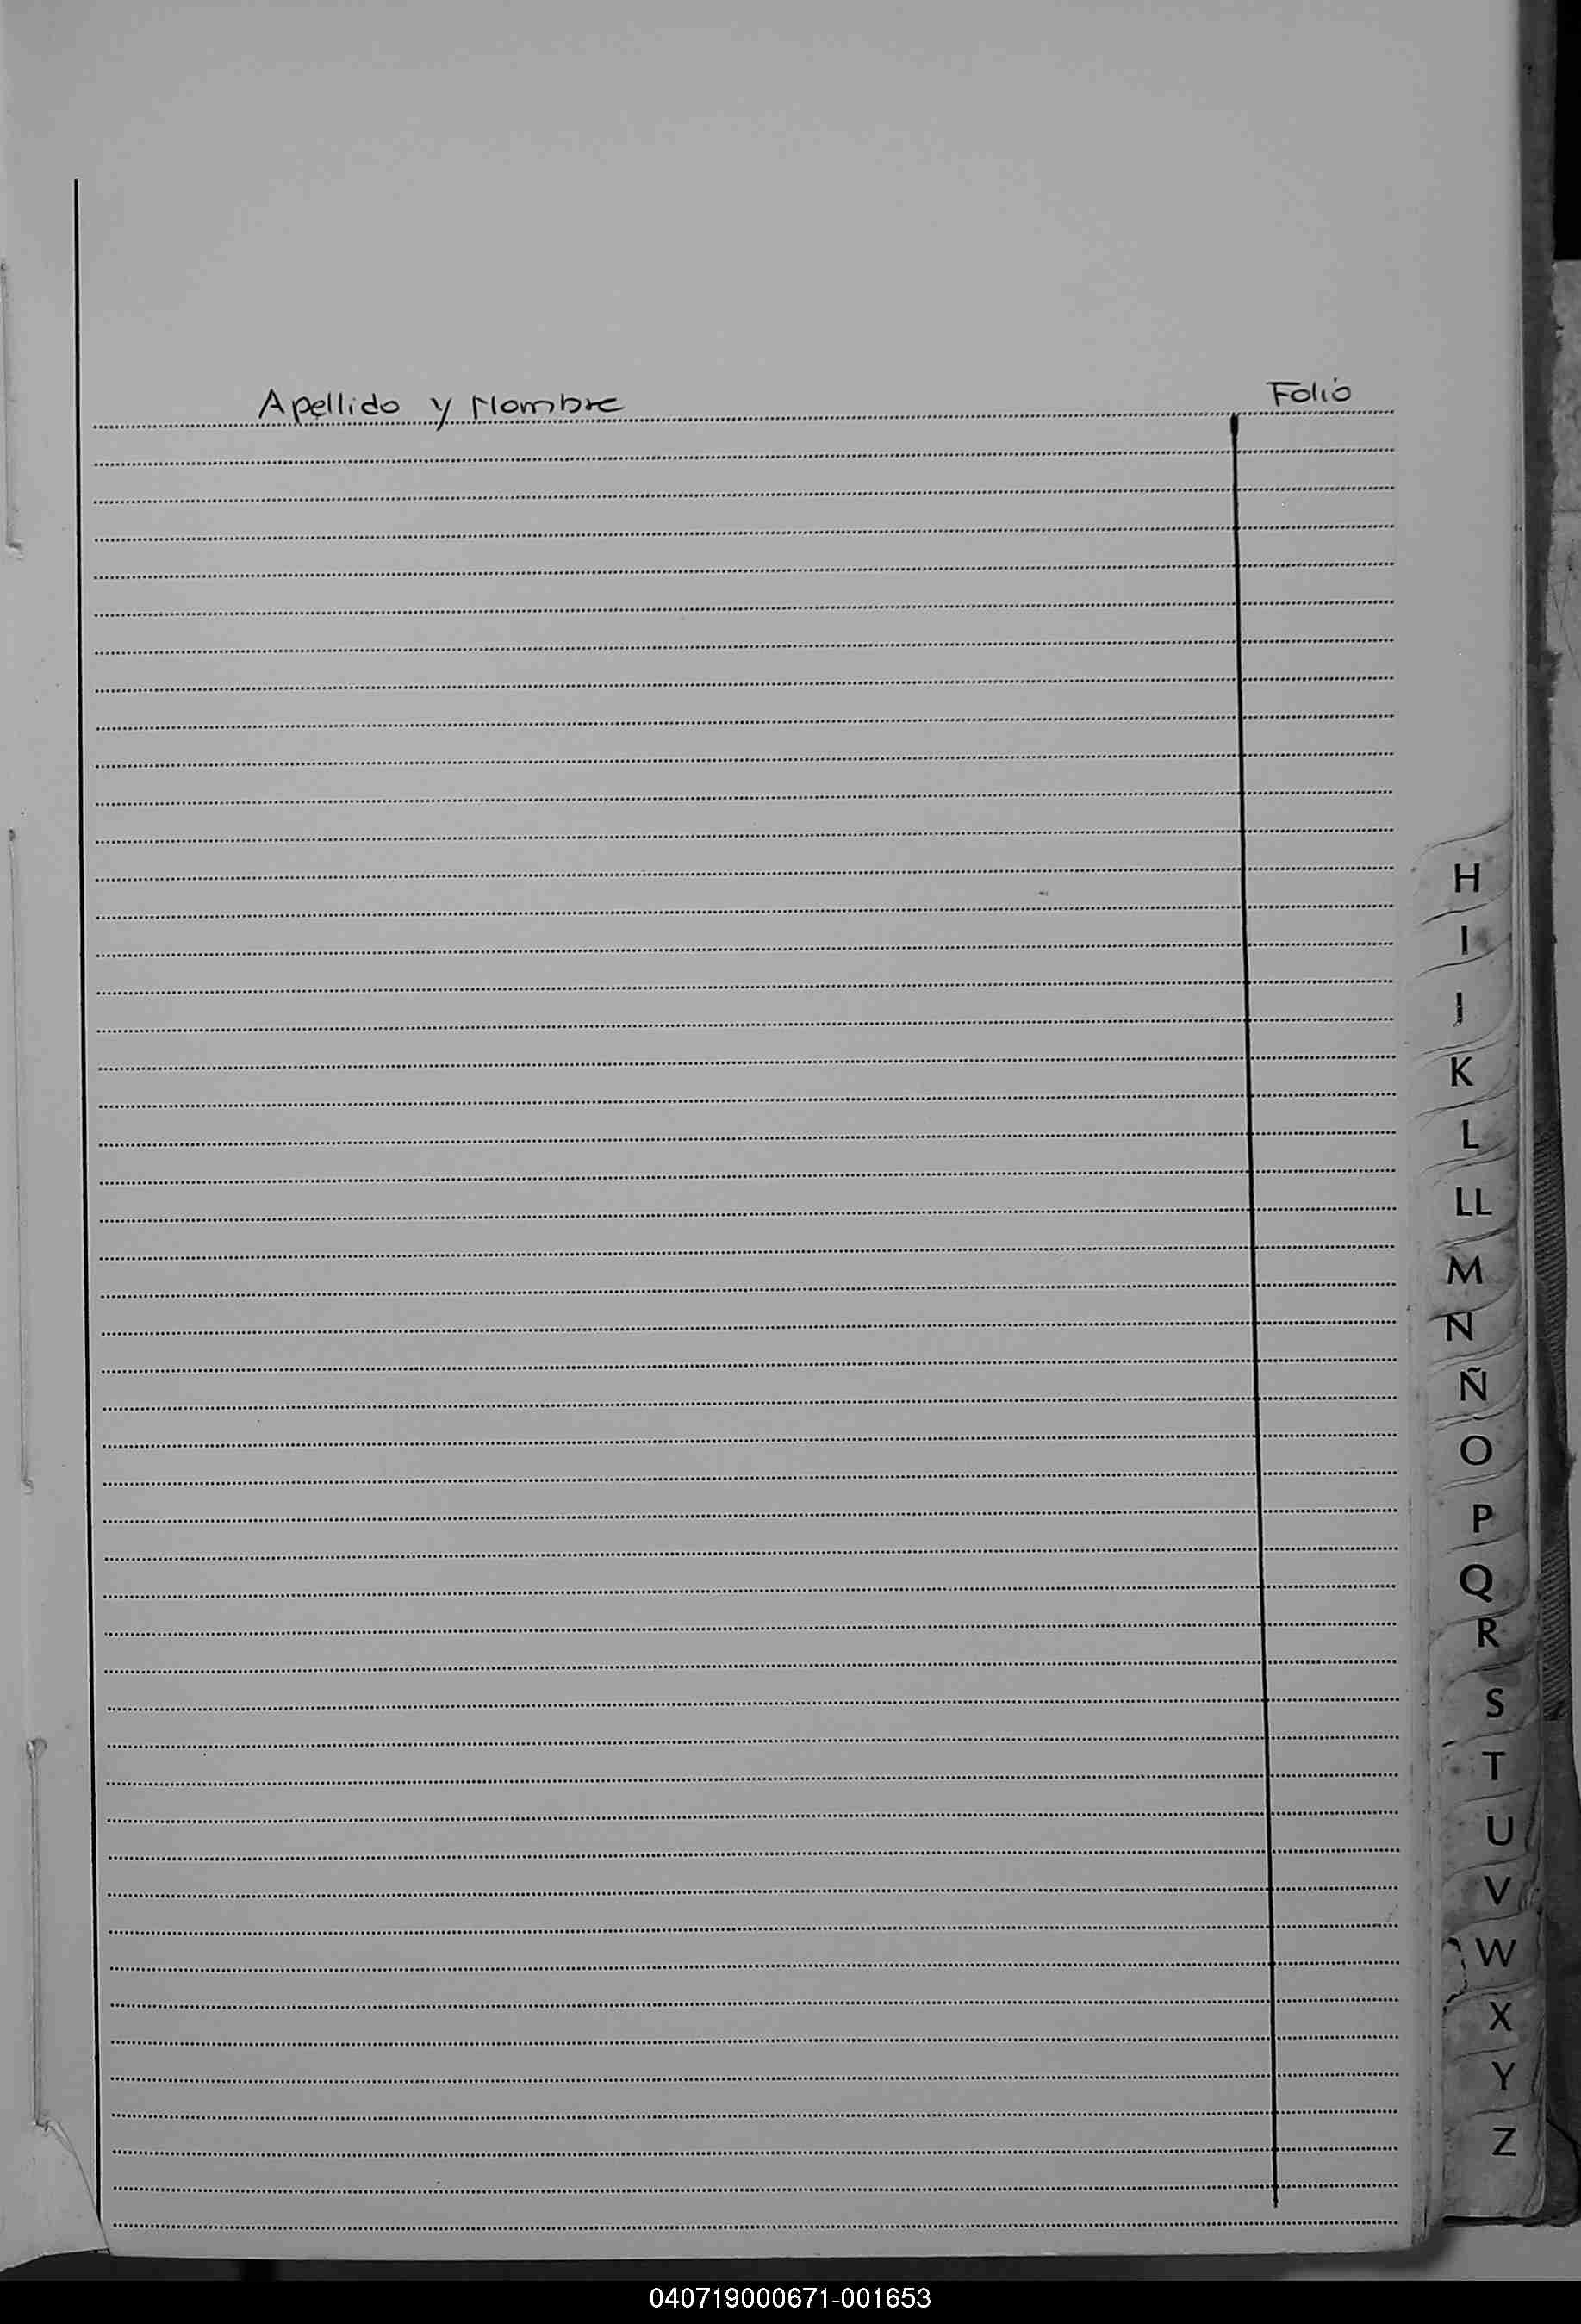 Apellido y Nombre Folio
H
I
J
K
L
LL
M
N
Ñ
O
P
Q
R
S
T
U
V
W
X
Y
Z
040719000671-001653